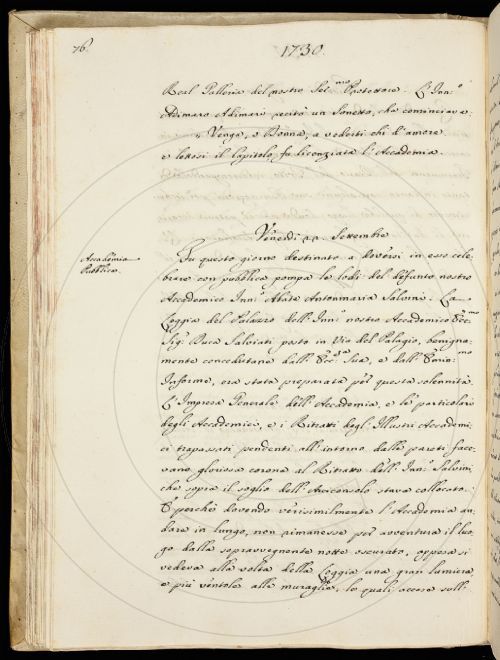 76.
1730.
Real Galleria del nostro Ser.mo Protettore. L'Inn:o
Adimaro Adimari recitò un Sonetto, che cominciava
Venga, o Donna, a vederti chi d'amore
e lettosi il Capitolo, fu licenziata l'Accademia.
Venerdì 22. Settembre
Accademia
Pubblica.
Fu questo giorno destinato a doversi in esso cele
brare con pubblica pompa le lodi del defunto nostro
Accademico Inn:o Abate Antonmaria Salvini. La
Loggia del Palazzo dell'Inn:o nostro Accademico Ecc:mo
Sig:r Duca Salviati posto in Via del Palagio, benigna
mente concedutane dall'Ecc:za Sua, e dall'Eñio:mo
Informe, era stata preparata per questa solennità.
L'Impresa Generale dell'Accademia, e le particolari
degli Accademici, e i Ritratti degl'Illustri Accademi
ci trapassati pendenti all'intorno dalle pareti face
vano gloriosa corona al Ritratto dell'Inn:o Salvini,
che sopra il soglio dell'Arciconsolo stava collocato.
E perchè dovendo verisimilmente l'Accademia an
dare in lungo, non rimanesse per avventura il luo
go dalla sopravvegnente notte oscurato, appesa si
vedeva alla volta della Loggia una gran lumiera
e più ventole alle muraglie, le quali accese sull'